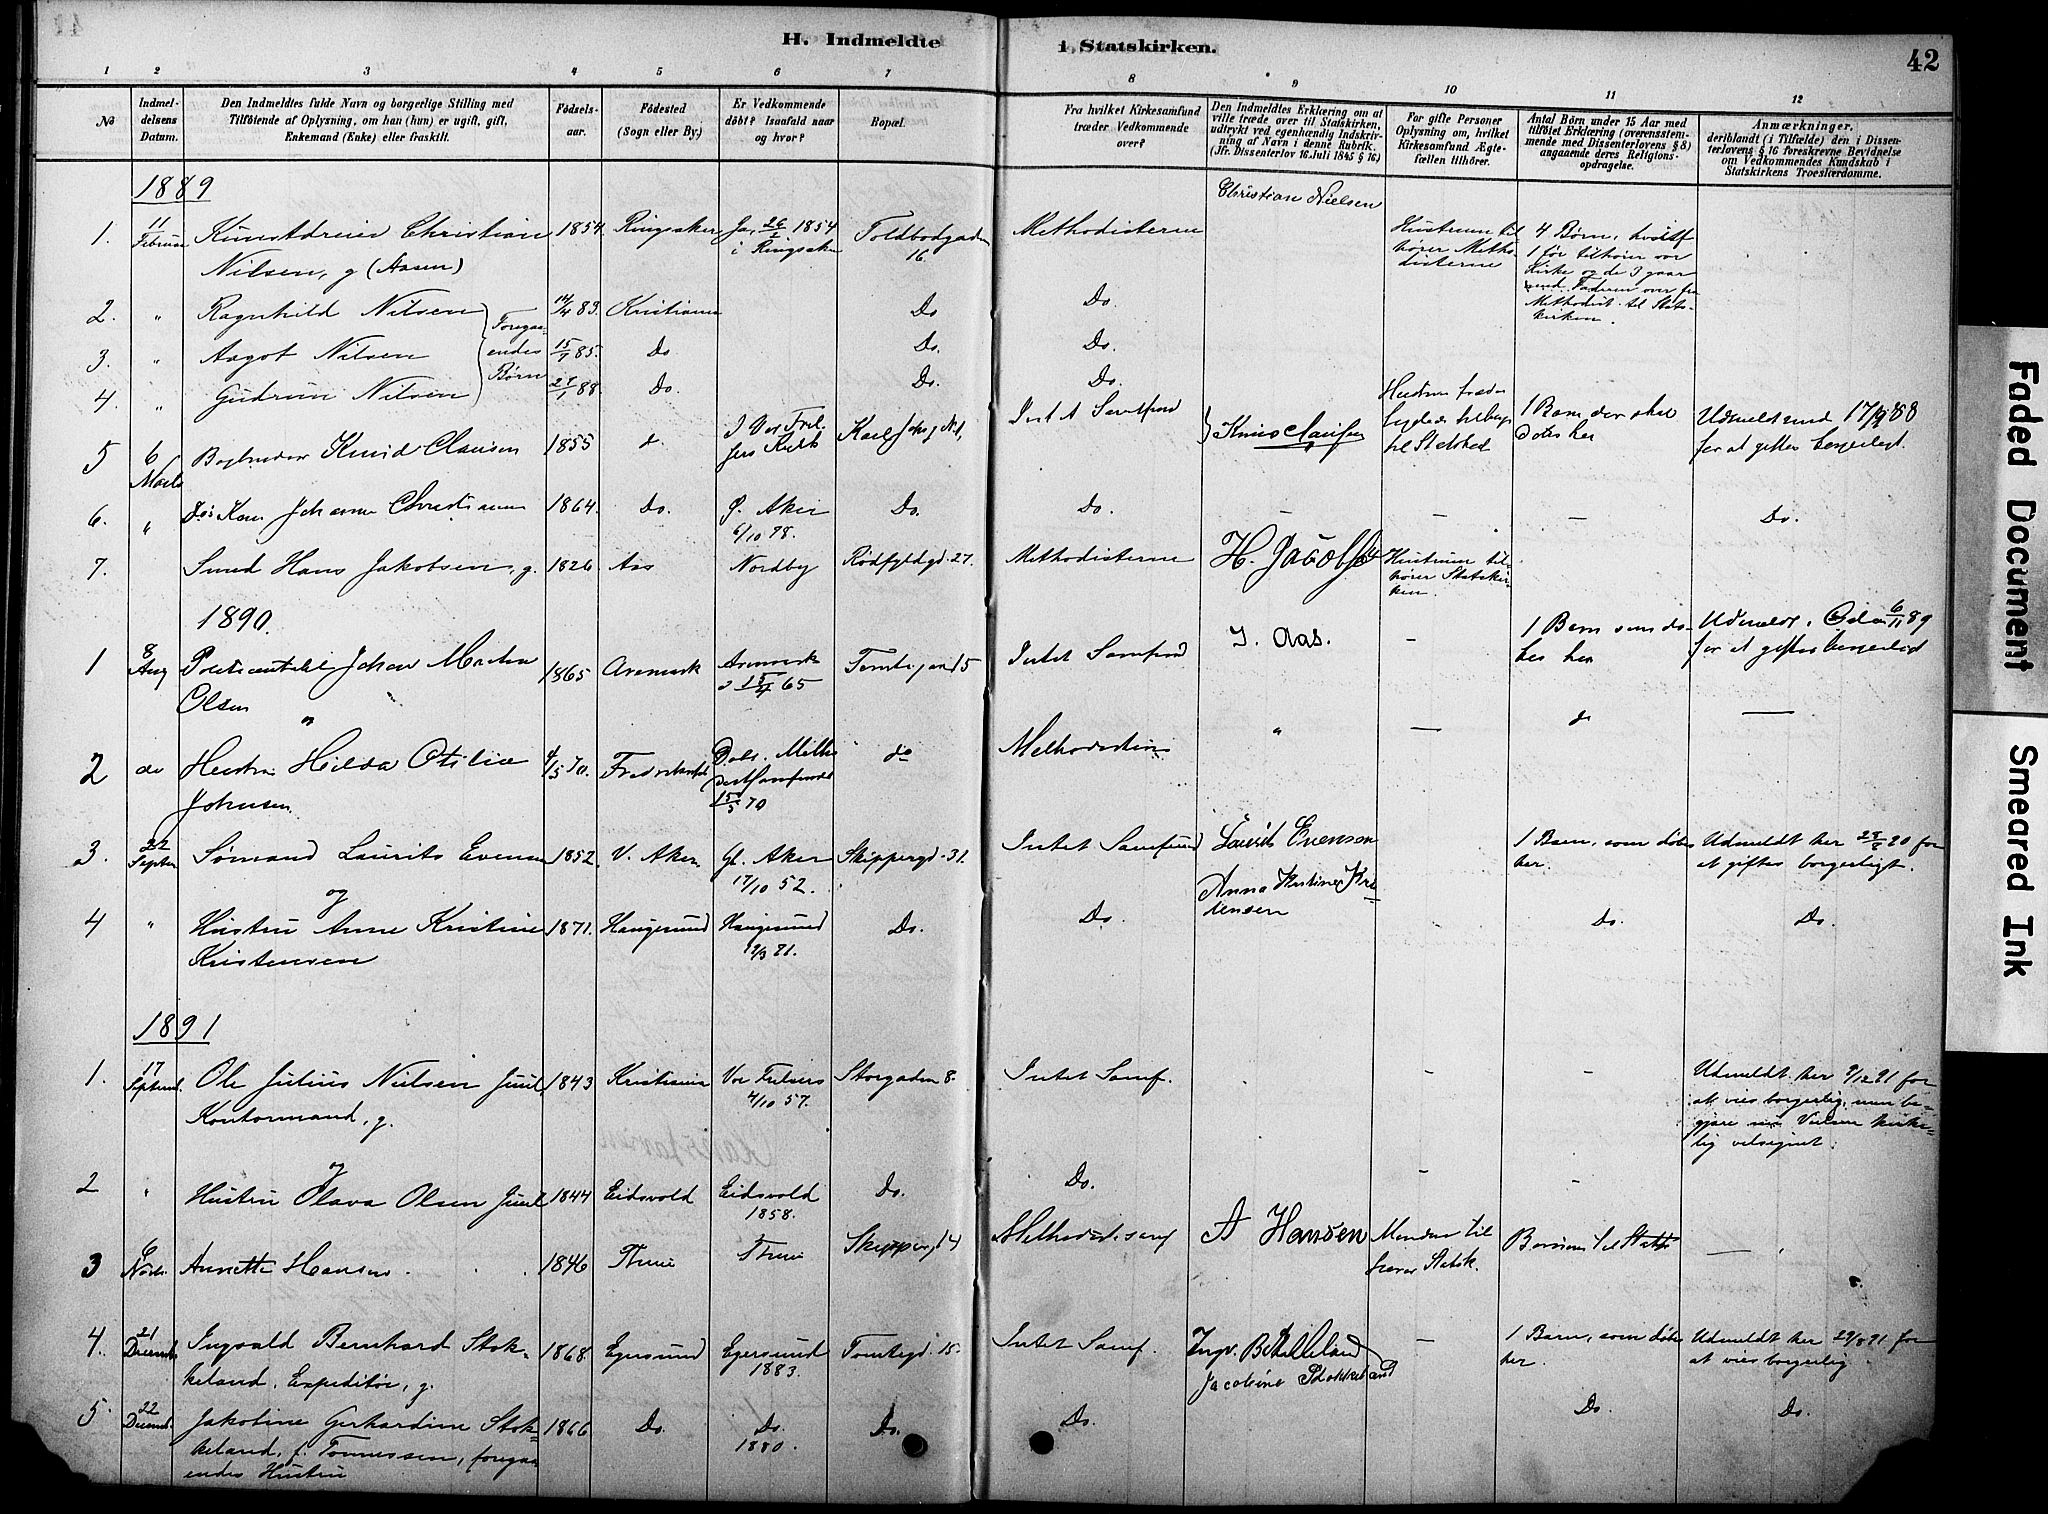 H. Indmeldte i Statskirken.
42
1 2 3 4 5 6 7 8 9 10 11 12
No
Indmel-
delsens
Datum.
Den Indmeldtes fulde Navn og borgerlige Stilling med
Tilføiende af Oplysning, om han (hun) er ugift, gift,
Enkemand (Enke) eller fraskilt.
Fødsels-
aar.
Fødested
(Sogn eller By.)
Er Vedkommende
døbt? Isaafald naar
og hvor?
Bopæl.
Fra hvilket Kirkesamfund
træder Vedkommende
over?
Den Indmeldtes Erklæring om at
ville træde over til Statskirken,
udtrykt ved egenhændig Indskriv-
ning af Navn i denne Rubrik.
(Jfr. Dissenterlov 16. Juli 1845 § 16)
For gifte Personer
Oplysning om, hvilket
Kirkesamfund Ægte-
fællen tilhører.
Antal Børn under 15 Aar med
tilføiet Erklæring (overensstem-
mende med Dissenterlovens § 8)
angaaende deres Religions-
opdragelse.
Anmærkninger,
deriblandt (i Tilfælde) den i Dissen-
terlovens § 16 foreskrevne Bevidnelse
om Vedkommendes Kundskab i
Statskirkens Troeslærdomme.
1889
Christian Nielsen
1. 11 Februar Kunstdreier Christian 1854 Ringsaker Ja, 26/2 1854 Toldbodgaden Methodisterne Hustruen til- 4 Børn, hvoraf
Nilsen, g (Aasen) i Ringsaker 16. hører Metho- 1 før tilhører vor
disterne Kirke og de 3 gaar
med Faderen over fra
Methodist. til Stats-
kirken.
2. " Ragnhild Nilsen 14/4 83. Kristiania Do Do.
3. " Aagot Nilsen Foregaa- endes Børn 15/1 85. Do Do. Do.
4. " Gudrun Nilsen 88. Do. Do. Do.
5 6 Marts Knud Clausen 1855 d. Intet Samfund Knud Clausen 1 Barn der skal Udmeldt 17/9 88
døbes her for at giftes borgerligt.
6. " Johanne Christiansen 1864. Do. G. Aker Do. Do. Do.
6/10 78.
7. Smed Hans Jakobsen, g. 1826 Aas Nordby Rødfyldgd. 27. Methodisterne H. Jacobsen Hustruen til-
hører Statskir-
ken.
1890.
1 8 Aug Johan Martin 1865 Aremark Aremark Tomtegaden 5 Intet Samfund J. Aas. 1 Barn som dø- Udmeldt i Oslo 6/11 89
Olsen 15/4 65 bes her for at giftes borgerlig
og
2 do Hustru Hilda Otilie 4/5 70. Fredrikshald do Methodisterne " d
Johnsen 15/5 70
3. 22 Septbr Sømand Laurits Evensen 1852. V. Aker Gl. Aker Skippergd. 31. Intet Samfund Laurits Evensen 1 Barn, som døbes Udmeldt her 28/6 90 for
17/10 52. her. at giftes borgerligt.
og
Anna Kristine Kri-
stensen
4 " Hustru Anne Kristine 1871. Haugesund Haugesund Do. Do. Do. Do.
Kristensen 2/3 71.
1891
1. 17 Septemb. Ole Julius Nielsen Juul, 1843 Kristiania Vor Frelsers Storgaden 8. Intet Samf. Udmeldt her 9/12 91 for
Kontormand, g. 4/10 57. at vies borgerlig, men be-
gjære sin Vielse kirke-
lig velsignet.
og
2 " Hustru Olava Olsen Juul 1844 Eidsvold Eidsvold Do. Do.
1858.
3 6 Novbr. Annette Hansen 1846 Skippergd 4 Methodist. samf A Hansen Manden til
hører Statsk. Børnene til Statsk
4. 21 Decemb. Ingvald Bernhard Stok- 1868. Egersund Egersund Tomtegd. 15. Intet Samf. 1 Barn, som døbes Udmeldt her 29/8 91 for
keland, Expeditør, g. 1883. her. at vies borgerlig.
Jacobine Stokkeland
5. 22 Decemb. Jakobine Gerhardine Stok- 1866 Do. Do. Do. Do. Do. Do.
keland, f. Tønnessen, foregaa- 1880.
endes Hustru
Faded Document
Smeared Ink